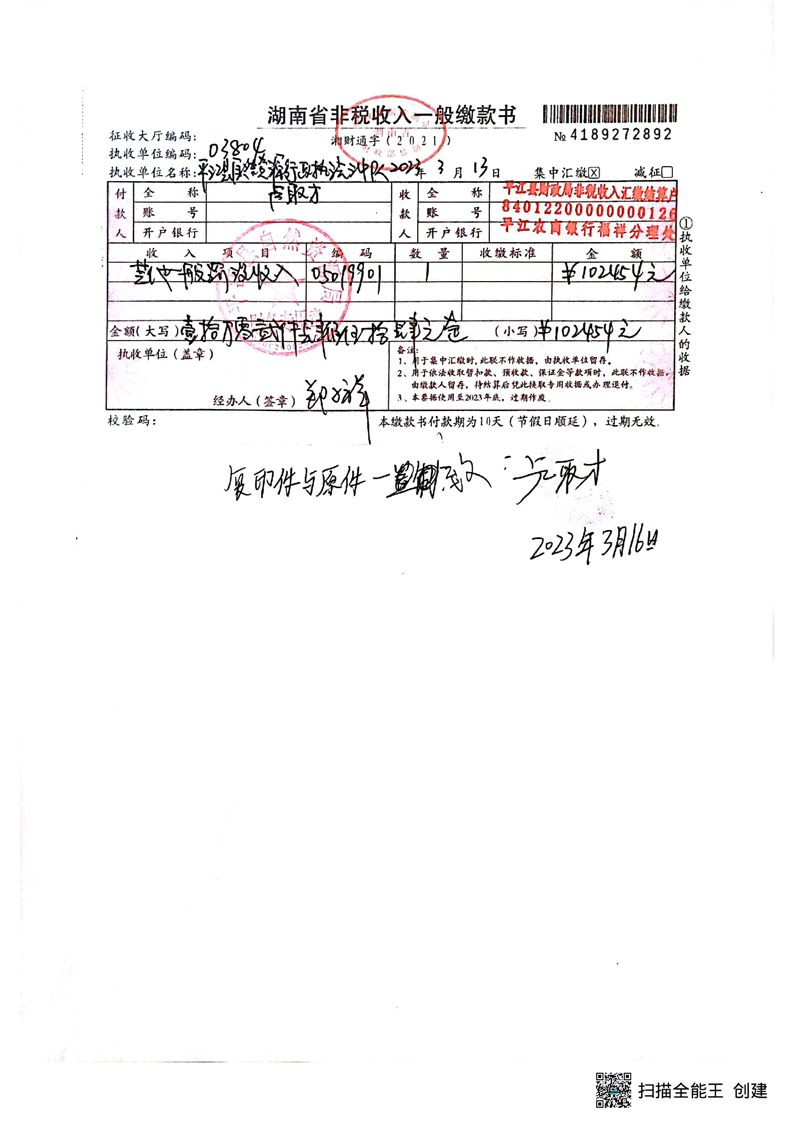 湖南省非税收入一般缴款书
湘财通字(2021)
№ 4189272892
征收大厅编码:
执收单位编码: 03804
执收单位名称: 2023年 3 月 13 日 集中汇缴☒ 减征☐
付款人 全称 卢取才 收款人 全称 平江县财政局非税收入汇缴结算户
账号 账号 84012200000000126
开户银行 开户银行 平江农商银行福祥分理处
收入项目 编码 数量 收缴标准 金额
其他一般罚没收入 05019901 1 ¥102454元
金额(大写) 壹拾万零贰仟肆佰伍拾肆元 (小写) ¥102454元
执收单位(盖章)
经办人(签章)
备注:
1、用于集中汇缴时,此联不作收据,由执收单位留存。
2、用于依法收取暂扣款、预收款、保证金等款项时,此联不作收据,
由缴款人留存,待结算后凭此换取专用收据或办理退付。
3、本票据使用至2023年底,过期作废。
①执收单位给缴款人的收据
校验码: 本缴款书付款期为10天(节假日顺延),过期无效。
复印件与原件一致 : 卢取才
2023年3月16日
扫描全能王 创建